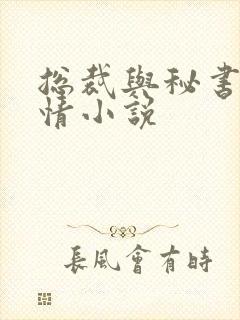 總裁與秘書
情小說
長風會有時